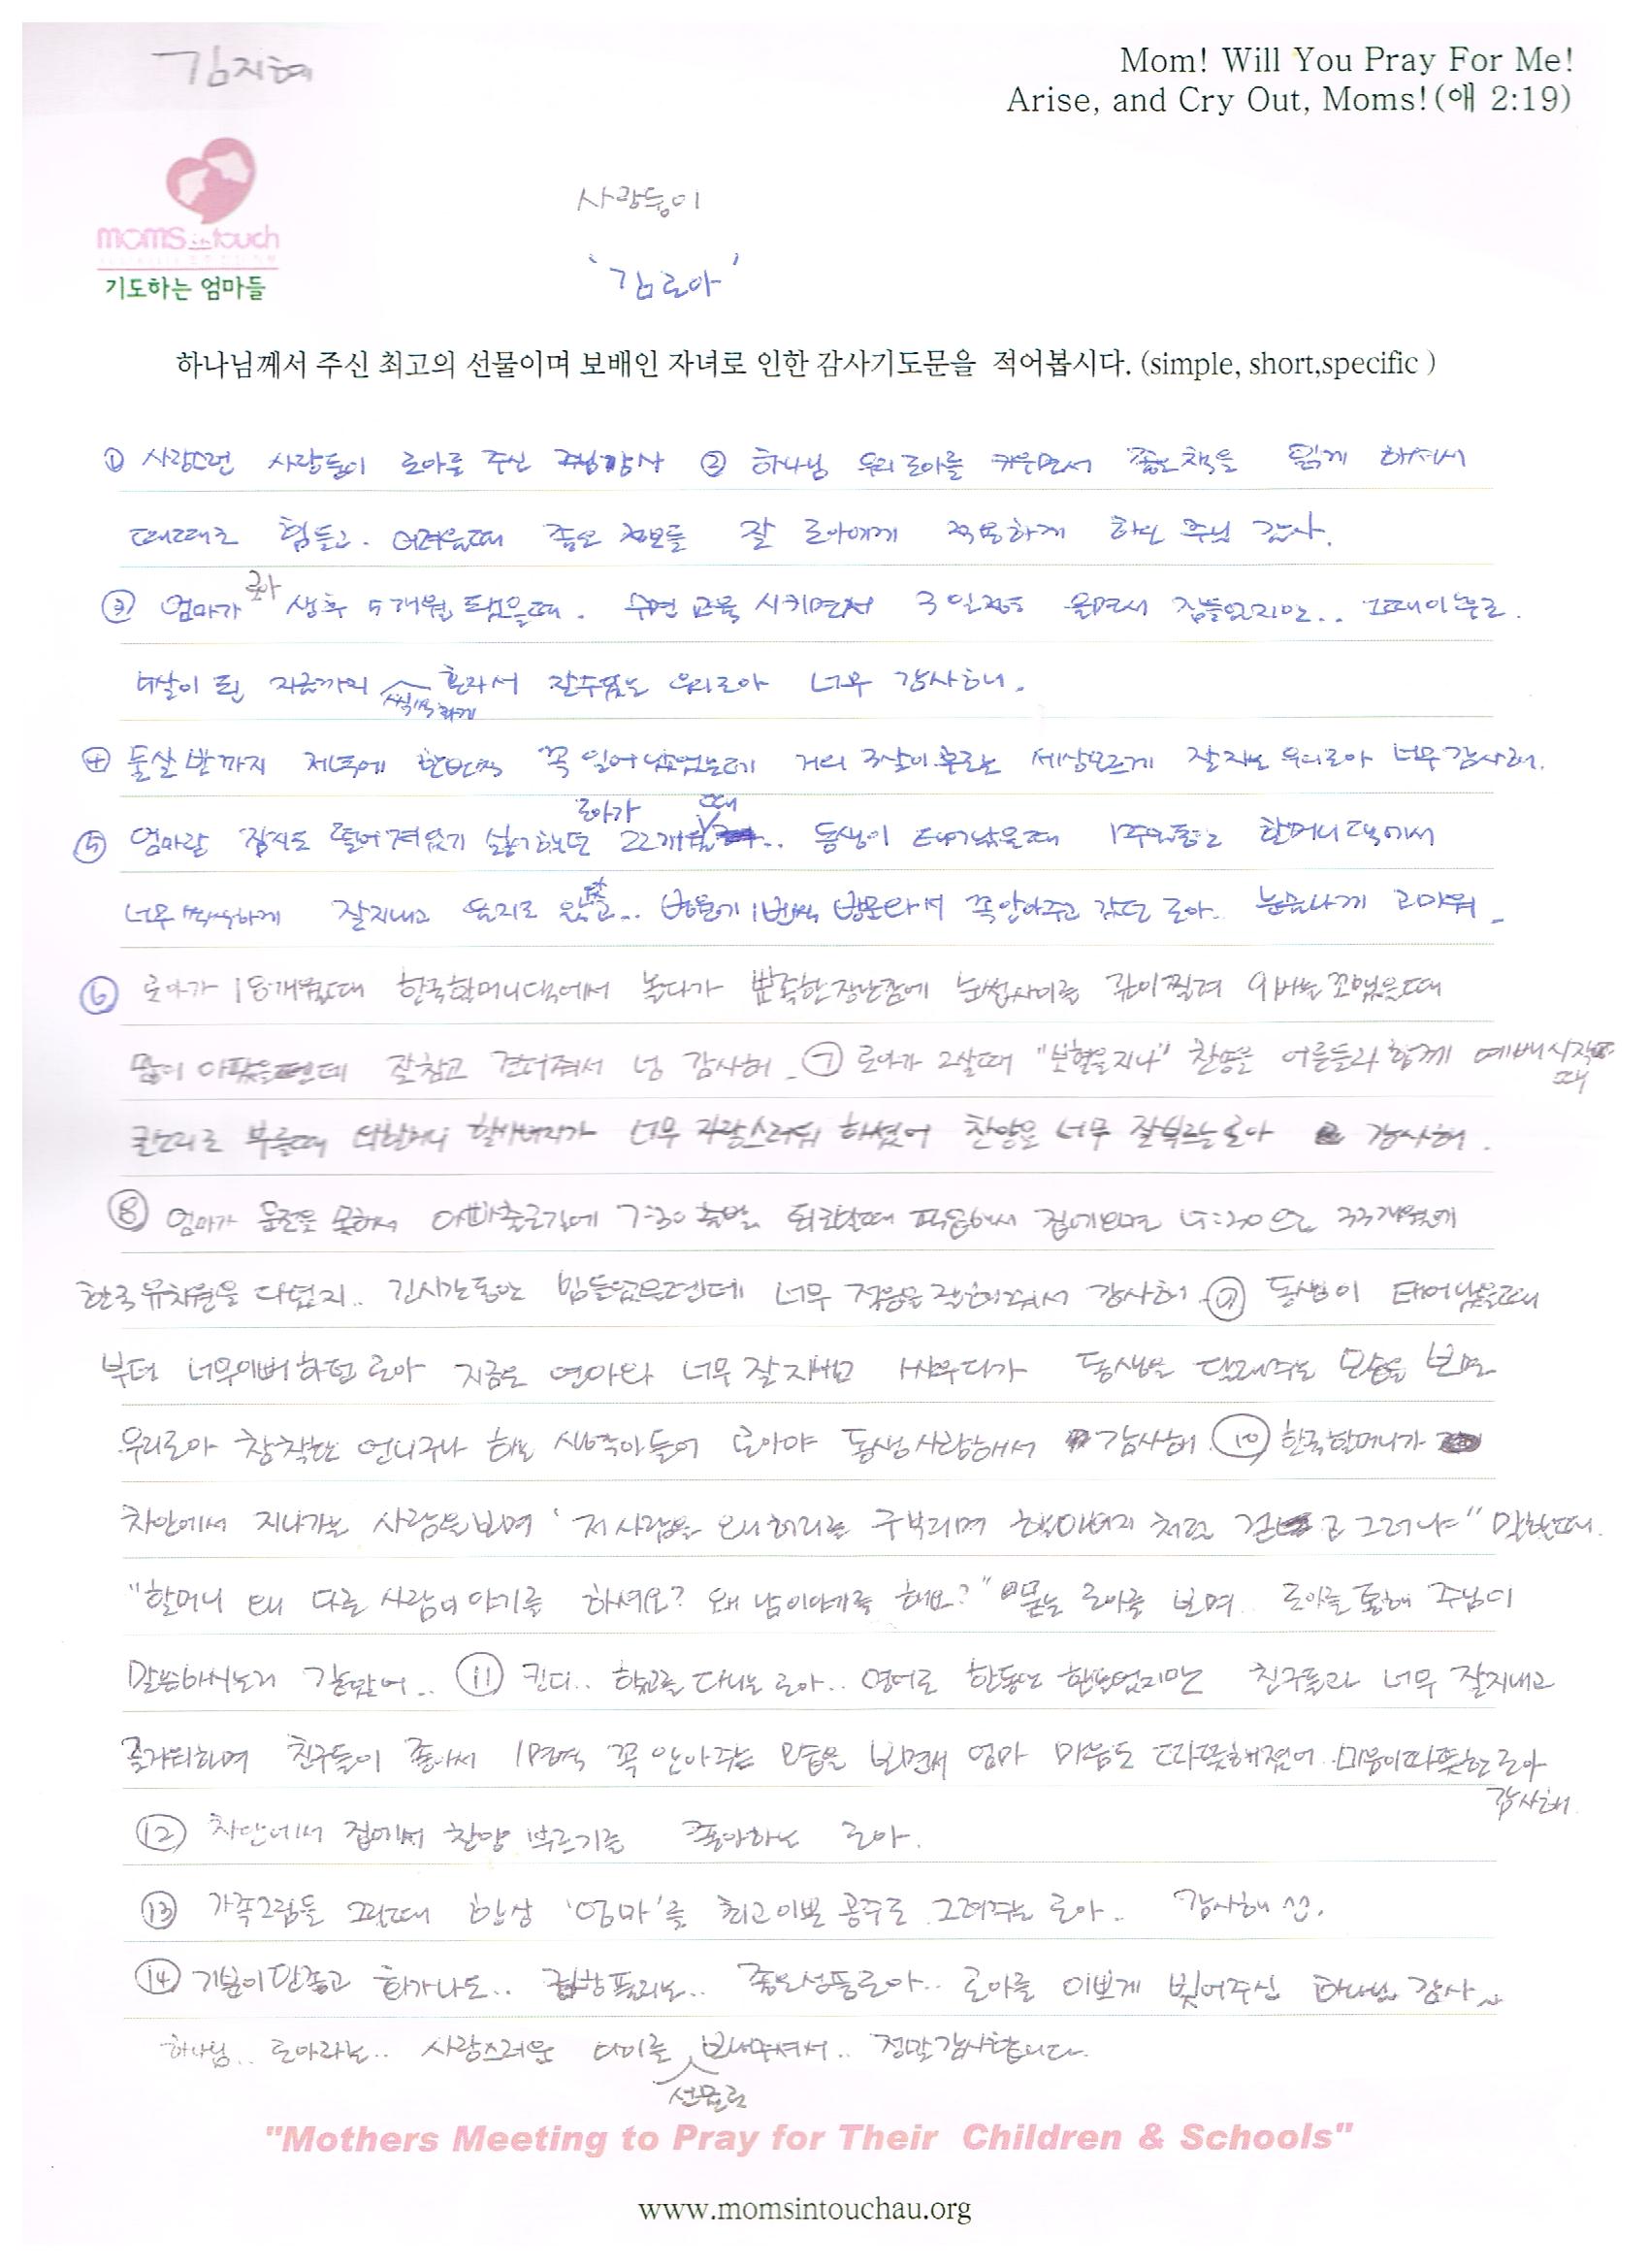 김지현
Mom! Will You Pray For Me!
Arise, and Cry Out, Moms!(애 2:19)
moms in touch
기도하는 엄마들
사랑둥이
'김로아'
하나님께서 주신 최고의 선물이며 보배인 자녀로 인한 감사기도문을 적어봅시다. (simple, short,specific )
① 사랑스런 사랑둥이 로아를 주신 주님감사 ② 하나님 우리로아를 키우면서 좋은책을 읽게 하셔서
때때로 힘들고. 어려울때 좋은 정보들 잘 로아에게 적용하게 하신 주님 감사.
③ 엄마가 로아 생후 5개월 됐을때. 수면 교육 시키면서 3일정도 울면서 잠들었지만.. 그때이후로.
5살이 된 지금까지 씩씩하게 혼자서 잘수있는 우리로아 너무 감사하니.
④ 둘살반까지 저녁에 한번씩 꼭 일어났었는데 거의 3살이후로는 세상모르게 잘자는 우리로아 너무감사해.
⑤ 엄마랑 잠시도 떨어져있기 싫어했던 로아가 22개월때.. 동생이 태어났을때 1주일동안 할머니댁에서
너무 씩씩하게 잘지내고 울지도 않고.. 병원에 1번씩 병문와서 꼭안아주고 갔던 로아. 눈물나게 고마워
⑥ 로아가 18개월때 한국할머니댁에서 놀다가 뾰족한장난감에 눈썹사이를 깊이찔려 9바늘 꼬맸을때
많이 아팠을텐데 잘참고 견뎌줘서 넘 감사해. ⑦ 로아가 2살때 "보혈을지나" 찬양을 어른들과 함께 예배시작때
큰소리로 부를때 할머니 할아버지가 너무 자랑스러워 하셨어 찬양을 너무 잘부르는로아 감사해.
⑧ 엄마가 운전을 못해서 아빠출근길에 7:30 출발. 퇴근할때 픽업해서 집에오면 5:30으로 33개월에
한국유치원을 다녔지.. 긴시간동안 힘들었을텐데 너무 적응을잘해줘서 감사해 ⑨ 동생이 태어났을때
부터 너무이뻐하던 로아 지금은 연아와 너무잘지내고 싸우다가 동생을 달래주는 모습을 보면
우리로아 참착한 언니구나 하는 생각이들어 로아야 동생사랑해서 감사해. ⑩ 한국할머니가
차안에서 지나가는 사람을보며 '저사람은 왜허리를 구부리며 할아버지 처럼 걷고 그러냐" 말할때.
"할머니 왜 다른 사람이야기를 하세요? 왜 남이야기를 해요?" 묻는 로아를 보며 로아를통해 주님이
말씀하시는거 같았어.. ⑪ 킨디.. 학교를 다니는 로아.. 영어로 한동안 힘들었지만 친구들과 너무 잘지내고
즐거워하며 친구들이 좋아서 1명씩 꼭 안아주는 모습을 보면서 엄마 마음도 따뜻해졌어. 마음이따뜻한로아
감사해.
⑫ 차안에서 집에서 찬양 부르기를 좋아하는 로아.
⑬ 가족그림을 그릴때 항상 '엄마'를 최고이쁜 공주로 그려주는 로아.. 감사해 ^^.
⑭ 기분이안좋고 화가나도.. 금방풀리는.. 좋은성품로아.. 로아를 이쁘게 빚어주신 하나님 감사
하나님.. 로아라는.. 사랑스러운 아이를 선물로 보내주셔서.. 정말감사합니다.
"Mothers Meeting to Pray for Their Children & Schools"
www.momsintouchau.org